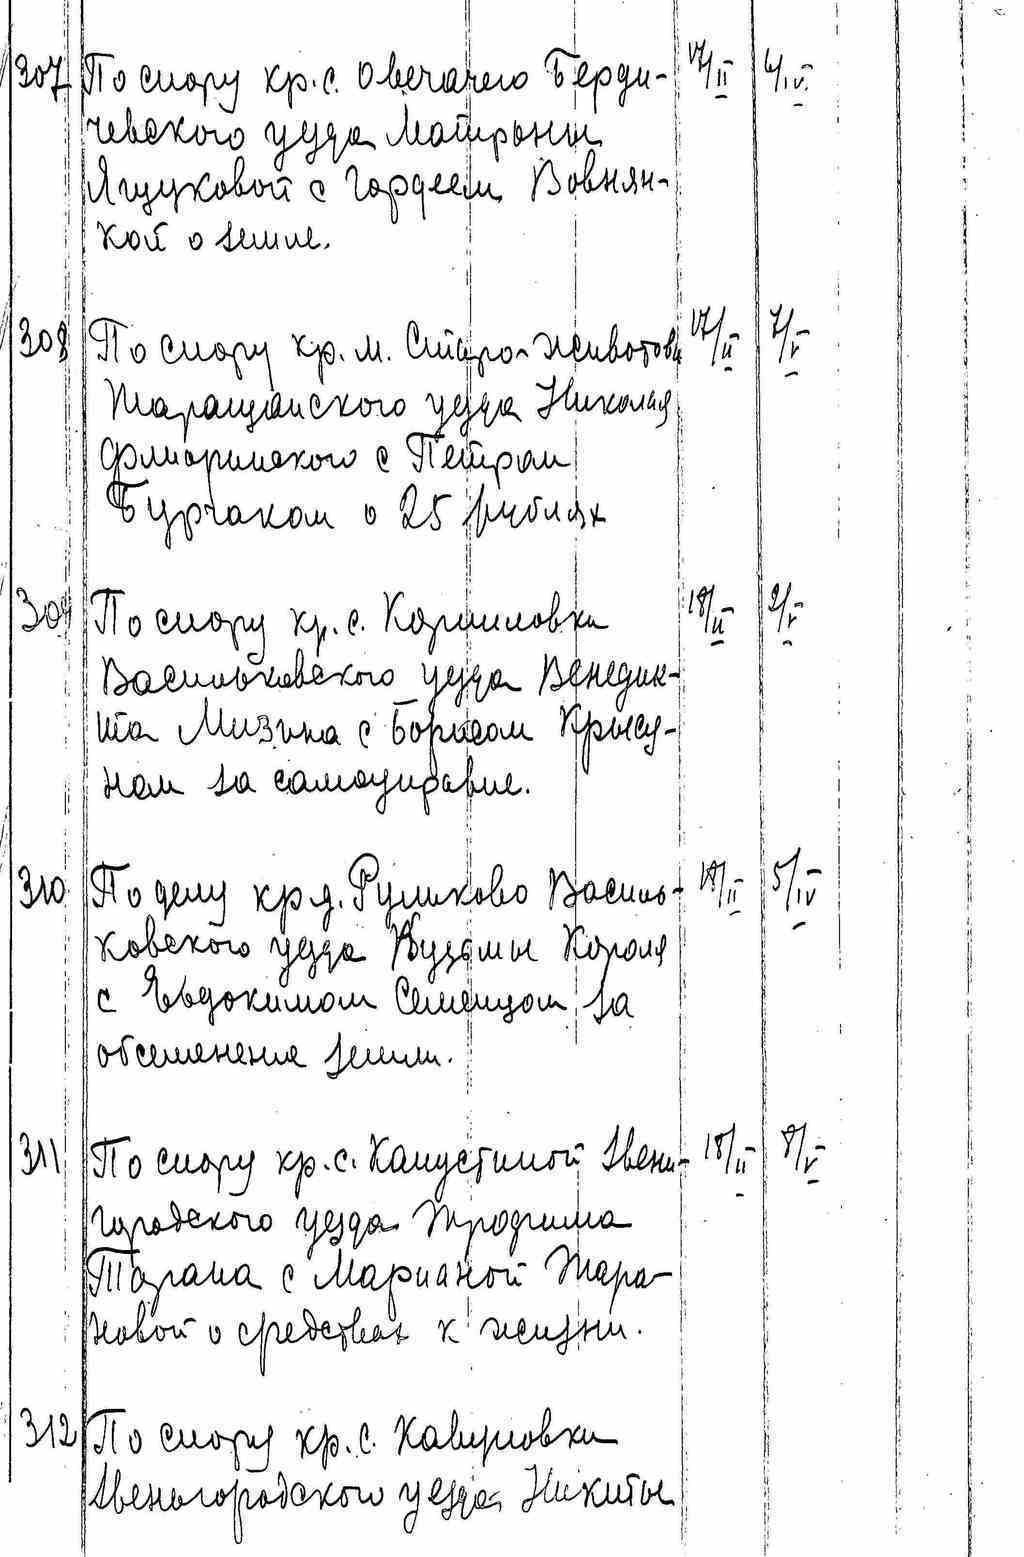 307 По спору кр. с. Овечачего Берди- 17/II 4/IV
чевского уезда Матроны
Ящуковой с Гордеем Вовнян-
кой о земле.
308 По спору кр. м. Старо-Животова 17/II 7/V
Таращанского уезда Николая
Флиоринского с Петром
Бурчаком о 25 рублях
309 По спору кр. с. Корниловки 18/II 2/V
Васильковского уезда Венедик-
та Мизына с Борисом Крысу-
ном за самоуправие.
310 По делу кр д. Руликово Василь- 18/II 5/IV
ковского уезда Кузьмы Короля
с Евдокимом Семенцом за
обсеменение земли.
311 По спору кр. с. Капустиной Звени- 18/II 8/V
городского уезда Трофима
Тарана с Марианой Тара-
новой о средствах к жизни.
312 По спору кр. с. Кавуновки
Звеньгородского уезда Никиты